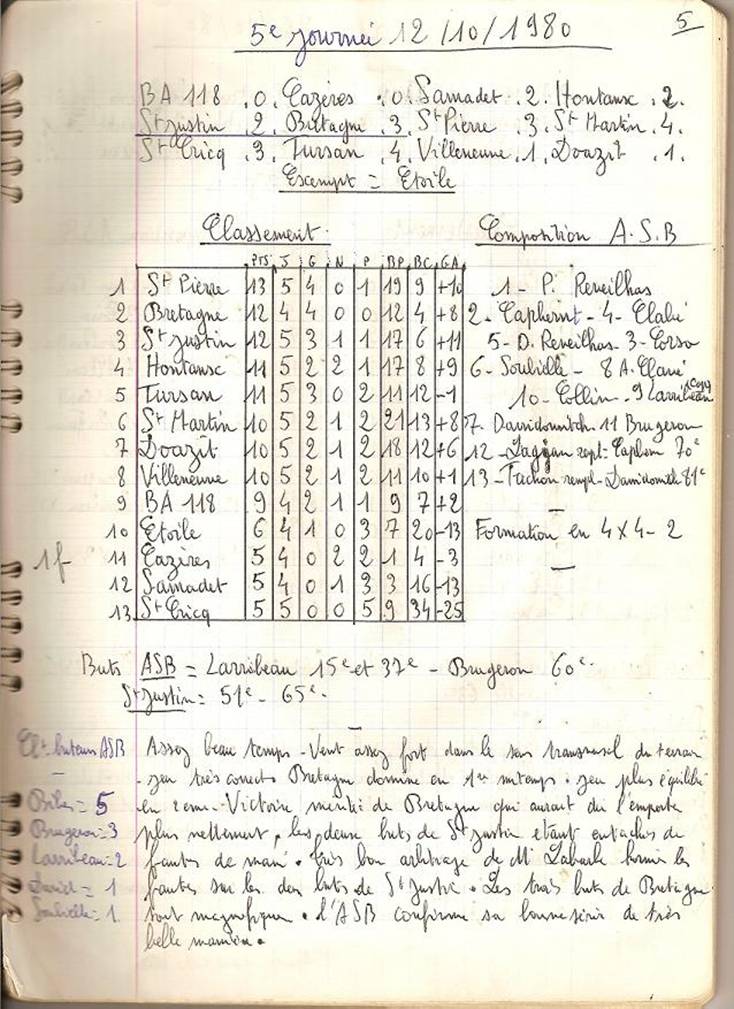 5
5e journée 12/10/1980
BA 118 . 0 . Cazères . 0 . Samadet . 2 . Hontanx . 2.
St Justin . 2 . Bretagne . 3 . St Pierre . 3 . St Martin . 4.
St Cricq . 3 . Tursan . 4 . Villeneuve . 1 . Doazit . 1.
Exempt = Etoile
Classement. Composition A.S.B
PTS J G N P BP BC GA
1 St Pierre 13 5 4 0 1 19 9 +10
2 Bretagne 12 4 4 0 0 12 4 +8
3 St Justin 12 5 3 1 1 17 6 +11
4 Hontanx 11 5 2 2 1 17 8 +9
5 Tursan 11 5 3 0 2 11 12 -1
6 St Martin 10 5 2 1 2 21 13 +8
7 Doazit 10 5 2 1 2 18 12 +6
8 Villeneuve 10 5 2 1 2 11 10 +1
9 BA 118 9 4 2 1 1 9 7 +2
10 Etoile 6 4 1 0 3 7 20 -13
11 Cazères 5 4 0 2 2 1 4 -3
12 Samadet 5 4 0 1 3 3 16 -13
13 St Cricq 5 5 0 0 5 9 34 -25
1f
1 - P. Reveilhas
2 - Caphern - 4 -
5 - D. Reveilhas - 3 - Corso
6 - Soubielle - 8 A.
10 - Collin - 9 Larribeau
7. Davidowitch 11 Brugeron
12 - rept - 70e
13 - Fachon rempl - Davidowitch 81e
Formation en 4 x 4 - 2
Buts ASB = Larribeau 15e et 37e - Brugeron 60e.
St Justin = 51e - 65e.
Clt buteurs ASB
Ribes = 5
Brugeron = 3
Larribeau = 2
David = 1
Soubielle = 1
Assez beau temps - Vent assez fort dans le sens transversal du terrain
- jeu très correct. Bretagne domine en 1ère mitemps. jeu plus équilibré
en 2eme. Victoire méritée de Bretagne qui aurait dû l'emporter
plus nettement, les deux buts de St Justin étant entachés de
fautes de main. très bon arbitrage de Mr Labarbe hormis les
fautes sur les deux buts de St Justin. Les trois buts de Bretagne
sont magnifiques. l'ASB confirme sa bonne série de très
belle manière.